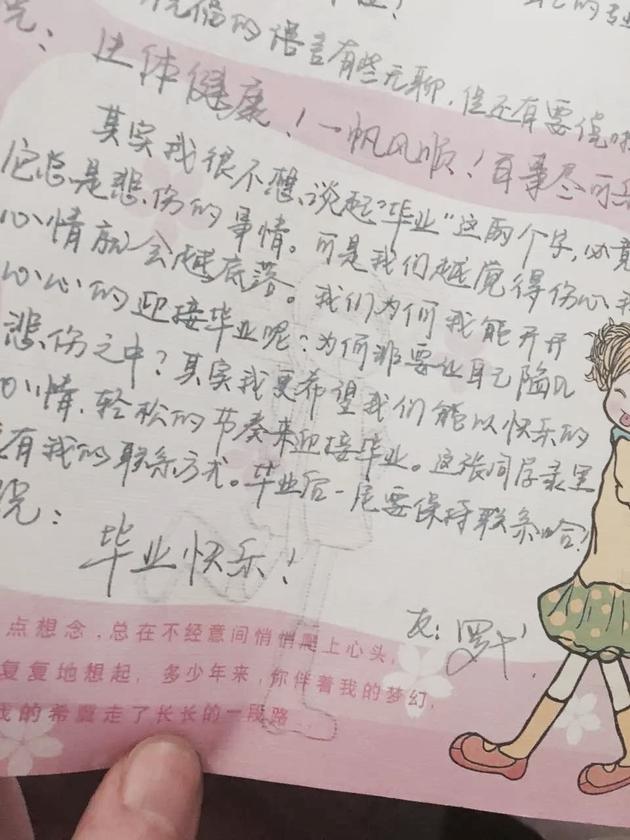 的语言有些无聊，但还有要说
说：
身体健康！一帆风顺！百事尽可乐
其实我很不想谈起“毕业”这两个字，必竟
它总是悲伤的事情。可是我们越觉得伤心，我
心情就会越底落。我们为何我能开开
心心的迎接毕业呢？为何非要让自己陷入
悲伤之中？其实我更希望我们能以快乐的
心情、轻松的节奏来迎接毕业。这张同学录里
有我的联系方式。毕业后一定要保持联系哈！
说：
毕业快乐！
友：
点想念，总在不经意间悄悄爬上心头，
复复地想起，多少年来，你伴着我的梦幻，
我的希冀走了长长的一段路